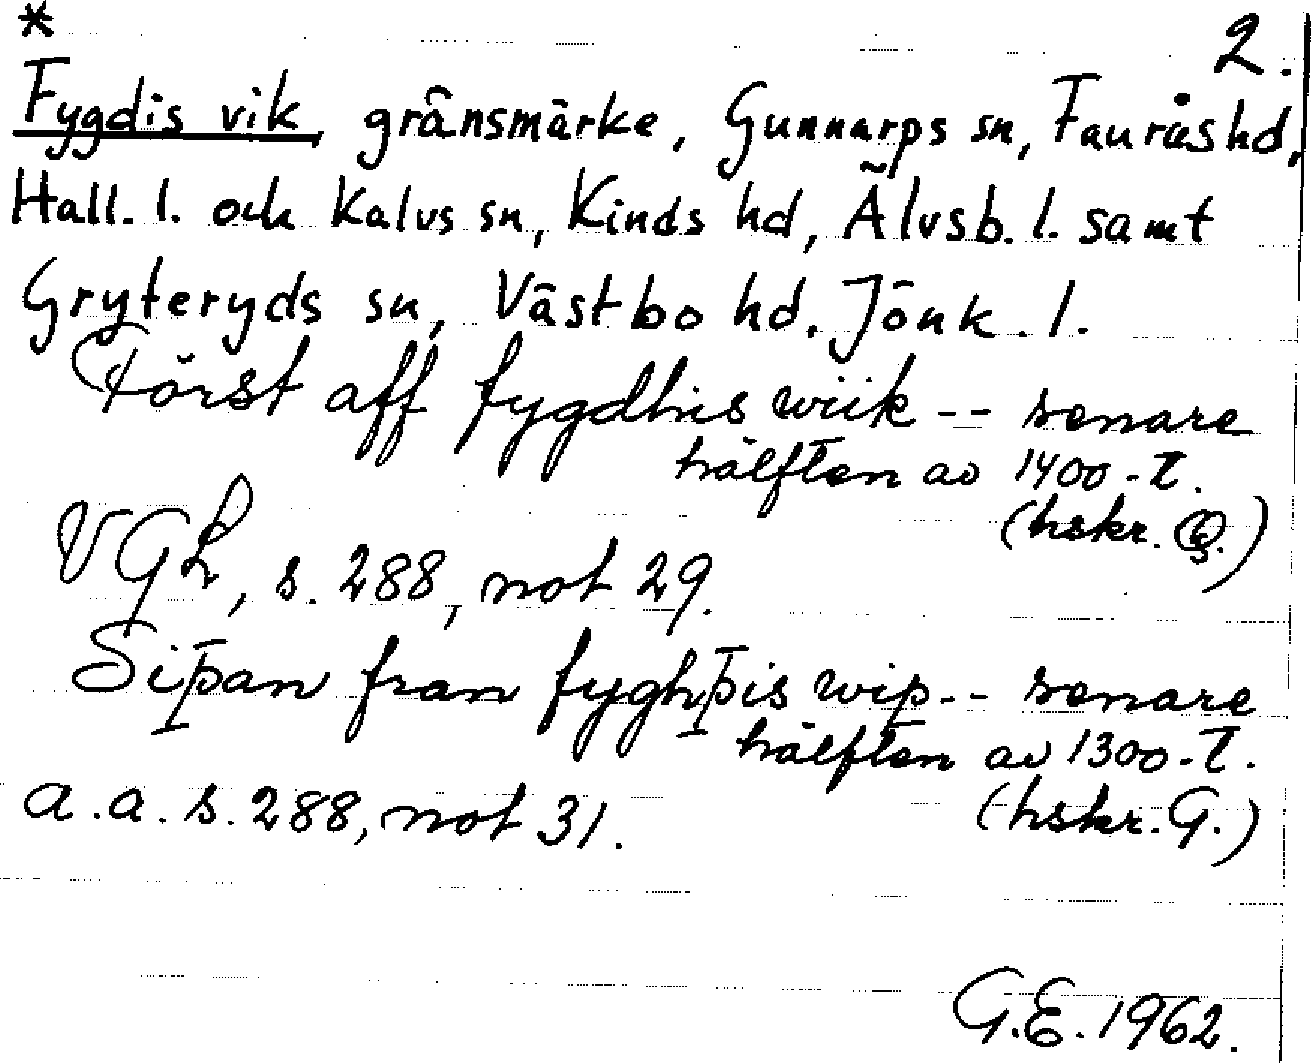 * 2.
Fygdis vik, gränsmärke, Gunnarps sn, Faurås hd,
Hall. l. och Kalvs sn, Kinds hd, Älvsb. l. samt
Gryteryds sn, Västbo hd. Jönk. l.
Först aff fygdhis wiik -- senare
hälften av 1400-t.
(hskr.        )
VGL, s. 288, not 29.
Siþan fran fyghþis wiþ -- senare
hälften av 1300-t.
a.a. s. 288, not 31. (hskr. G.)
G.E. 1962.